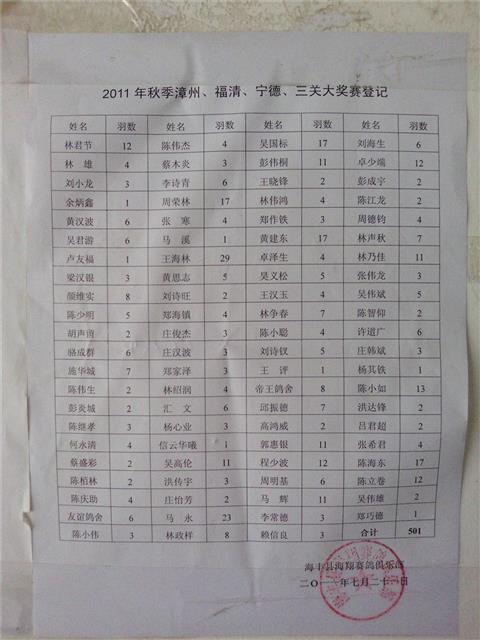 2011 年秋季漳州、福清、宁德、三关大奖赛登记
姓名 羽数 姓名 羽数 姓名 羽数 姓名 羽数
林君节 12 陈伟杰 4 吴国标 17 刘海生 6
林 雄 4 蔡木炎 3 彭伟桐 11 卓少端 12
刘小龙 3 李诗青 6 王晓锋 2 彭成宇 2
余炳鑫 1 周荣林 17 林伟鸿 4 陈江龙 2
黄汉波 6 张 寒 4 郑作铁 3 周德钧 4
吴君游 6 马 溪 1 黄建东 17 林声秋 7
卢友福 1 王海林 29 卓泽生 4 林乃佳 11
梁汉银 3 黄思志 5 吴义松 5 张伟龙 3
颜维实 8 刘诗旺 2 王汉玉 4 吴伟斌 5
陈少明 5 郑海镇 4 林争春 7 陈智仰 2
胡声雷 2 庄俊杰 3 陈小聪 4 许道广 6
骆成群 6 庄汉波 3 刘诗钗 5 庄韩斌 3
施华城 7 郑家泽 3 王 评 1 杨其铁 1
陈伟生 2 林绍润 4 帝王鸽舍 8 陈小如 13
彭炎城 2 汇 文 6 邱振德 7 洪达锋 2
陈继孝 3 杨心业 3 高鸿威 2 吕君超 2
何永清 4 信云华曦 1 郭惠银 11 张希君 4
蔡盛彩 2 吴高伦 11 程少波 12 陈海东 17
陈植林 2 洪传宇 3 周明基 6 陈立卷 12
陈庆助 4 庄怡芳 2 马 辉 11 吴伟雄 2
友谊鸽舍 6 马 永 23 李常德 3 郑巧德 1
陈小伟 3 林政样 8 赖信良 3 合计 501
海丰县海翔赛鸽俱乐部
二〇一一年七月二十三日